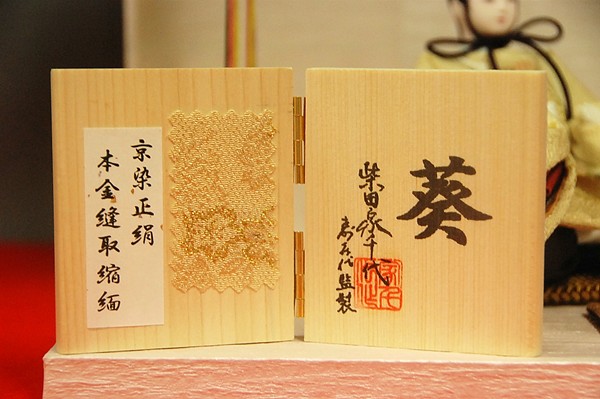 葵
柴田家千代
代監製
京染正絹
本金縫取縮緬